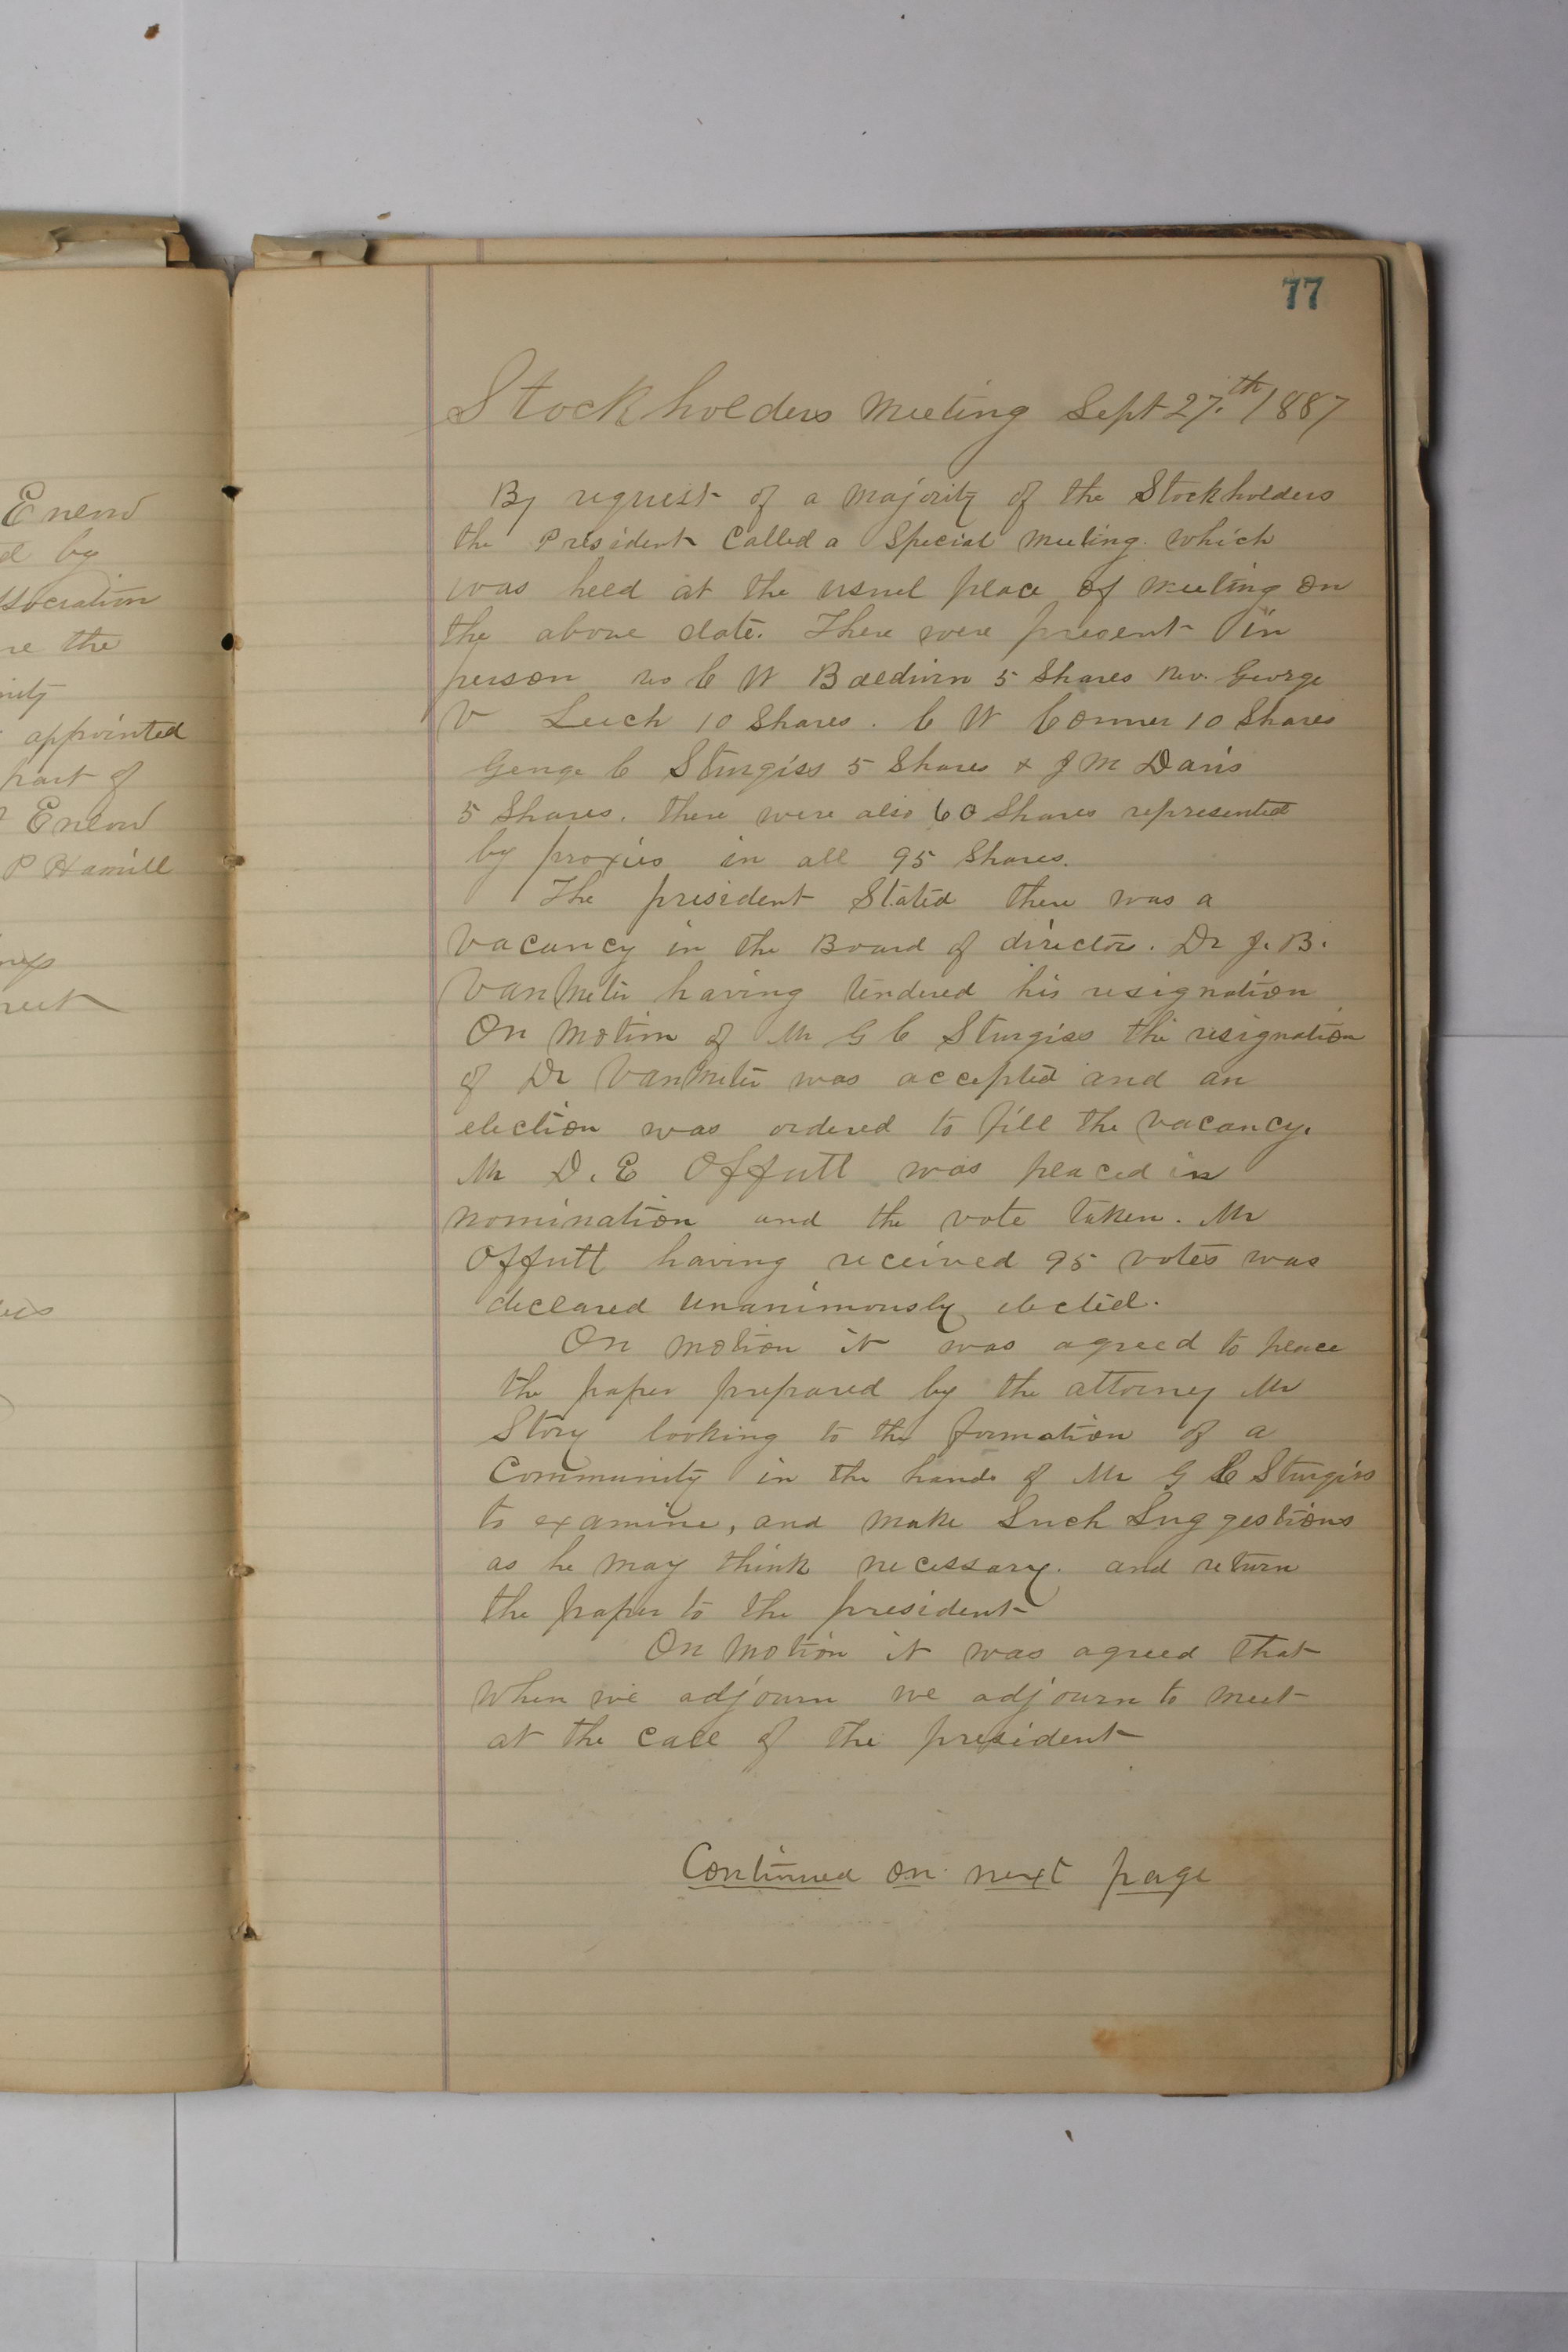 77
Stockholders Meeting Sept 27.th 1887
By request of a Majority of the Stockholders
the President Called a Special Meeting. which
was held at the usuel place of meeting on
the above date. There were present in
person C W Baldwin 5 Shares Rev. George
V Leech 10 Shares. C W Conner 10 Shares
George C Sturgiss 5 Shares & J M Davis
5 Shares. there were also 60 Shares represented
by proxies in all 95 Shares.
The president Stated there was a
Vacancy in the Board of director. Dr J. B.
VanMeter having tendered his resignation
On Motion of Mr G C Sturgiss the resignation
of Dr VanMeter was accepted and an
election was ordered to fill the vacancy.
Mr D. E Offutt was placed in
nomination and the vote taken. Mr
Offutt having received 95 votes was
declared unanimously elected.
On motion it was agreed to place
the paper prepared by the attorney Mr
Story looking to the formation of a
Community in the hands of Mr G C Sturgiss
to examine, and make Such Suggestions
as he may think necessary. and return
the paper to the president
On Motion it was agreed that
When we adjourn we adjourn to meet
at the call of the president
Continued on next page
Enlow
d by
ssociation
re the
nity
appointed
part of
Enlow
P Hamill